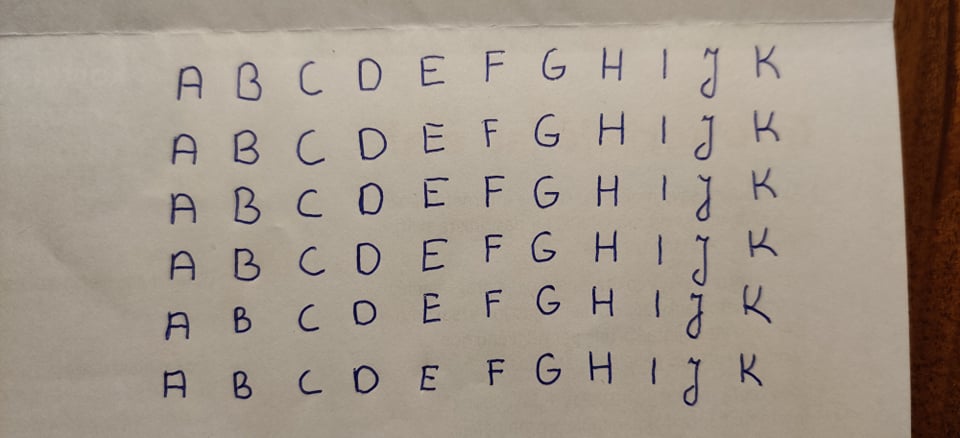 A B C D E F G H I J K
A B C D E F G H I J K
A B C D E F G H I J K
A B C D E F G H I J K
A B C D E F G H I J K
A B C D E F G H I J K